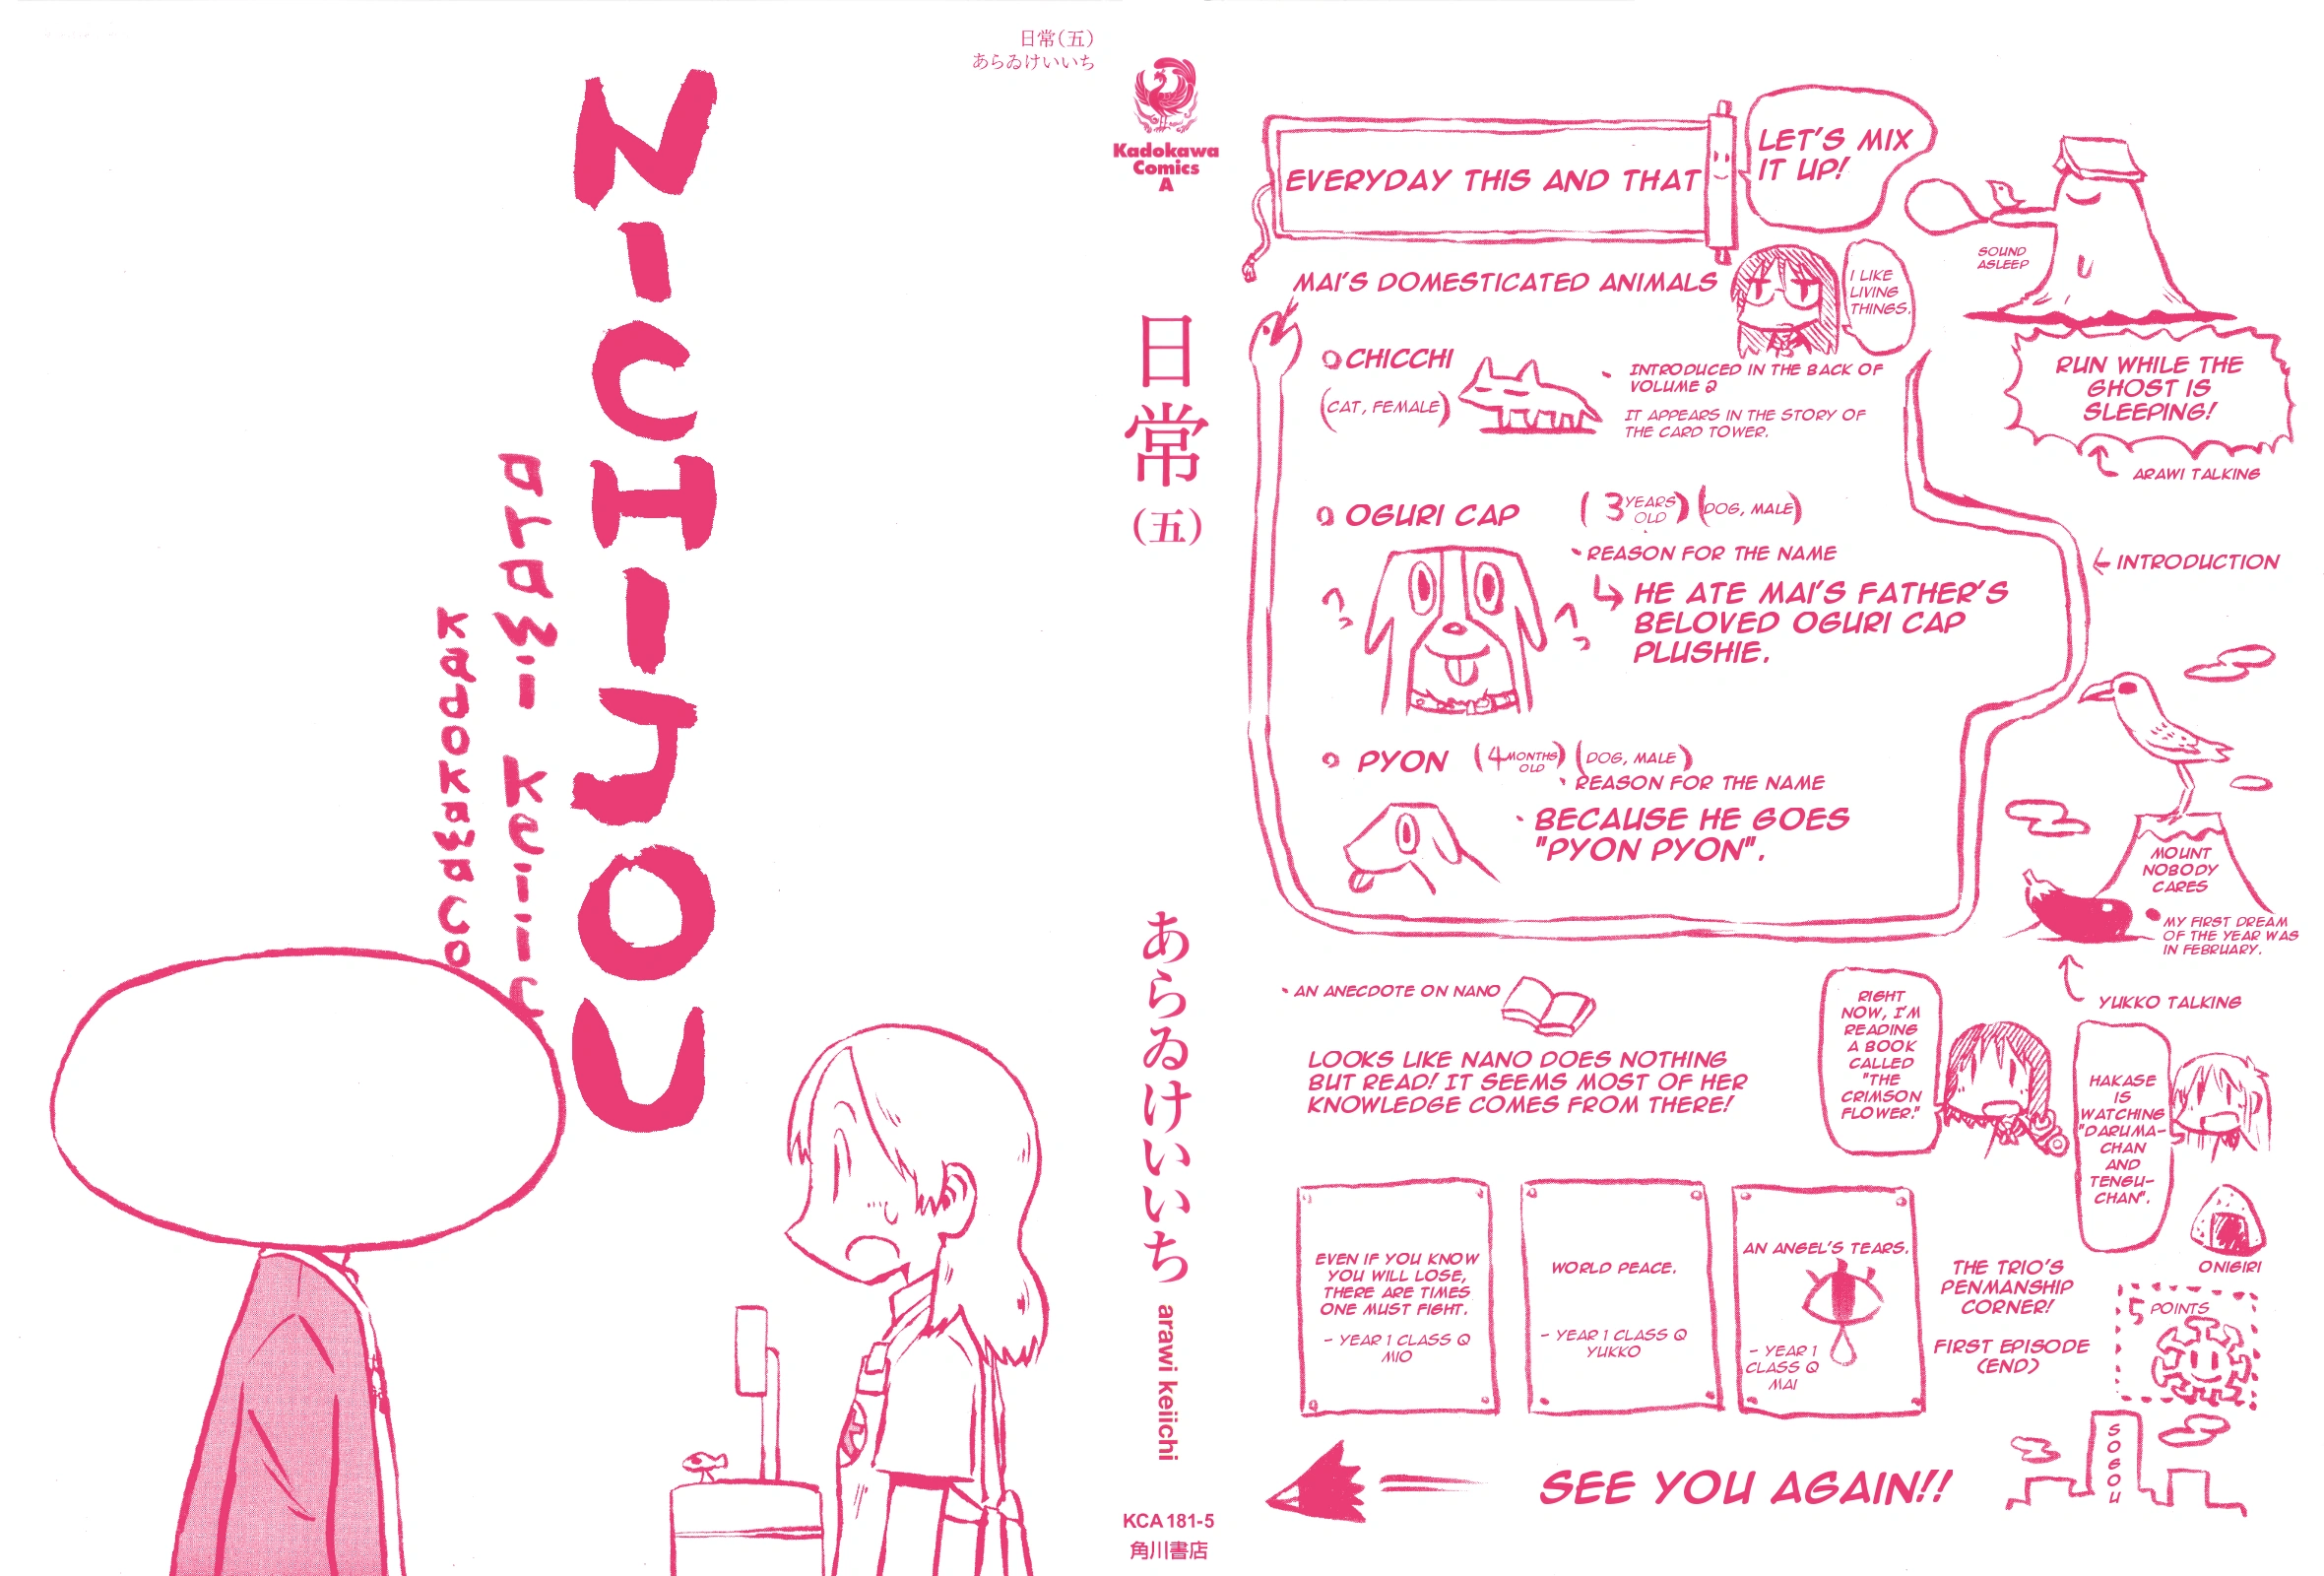 日常(五)
あらゐけいいち
NICHIJOU
arawi keiic
kadokawa co
Kadokawa
Comics
A
日常
(五)
あらゐけいいち
arawi keiichi
KCA 181-5
角川書店
EVERYDAY THIS AND THAT
LET'S MIX
IT UP!
SOUND
ASLEEP
RUN WHILE THE
GHOST IS
SLEEPING!
ARAWI TALKING
MAI'S DOMESTICATED ANIMALS
I LIKE
LIVING
THINGS.
CHICCHI
(CAT, FEMALE)
INTRODUCED IN THE BACK OF
VOLUME 2
IT APPEARS IN THE STORY OF
THE CARD TOWER.
OGURI CAP
(3 YEARS
OLD)
(DOG, MALE)
REASON FOR THE NAME
HE ATE MAI'S FATHER'S
BELOVED OGURI CAP
PLUSHIE.
へっ
へっ
INTRODUCTION
PYON
(4 MONTHS
OLD)
(DOG, MALE)
REASON FOR THE NAME
BECAUSE HE GOES
"PYON PYON".
MOUNT
NOBODY
CARES
MY FIRST DREAM
OF THE YEAR WAS
IN FEBRUARY.
YUKKO TALKING
AN ANECDOTE ON NANO
LOOKS LIKE NANO DOES NOTHING
BUT READ! IT SEEMS MOST OF HER
KNOWLEDGE COMES FROM THERE!
RIGHT
NOW, I'M
READING
A BOOK
CALLED
"THE
CRIMSON
FLOWER."
HAKASE
IS
WATCHING
"DARUMA-
CHAN
AND
TENGU-
CHAN".
ONIGIRI
EVEN IF YOU KNOW
YOU WILL LOSE,
THERE ARE TIMES
ONE MUST FIGHT.
- YEAR 1 CLASS Q
MIO
WORLD PEACE.
- YEAR 1 CLASS Q
YUKKO
AN ANGEL'S TEARS.
- YEAR 1
CLASS Q
MAI
THE TRIO'S
PENMANSHIP
CORNER!
FIRST EPISODE
(END)
5 POINTS
SOGOU
SEE YOU AGAIN!!